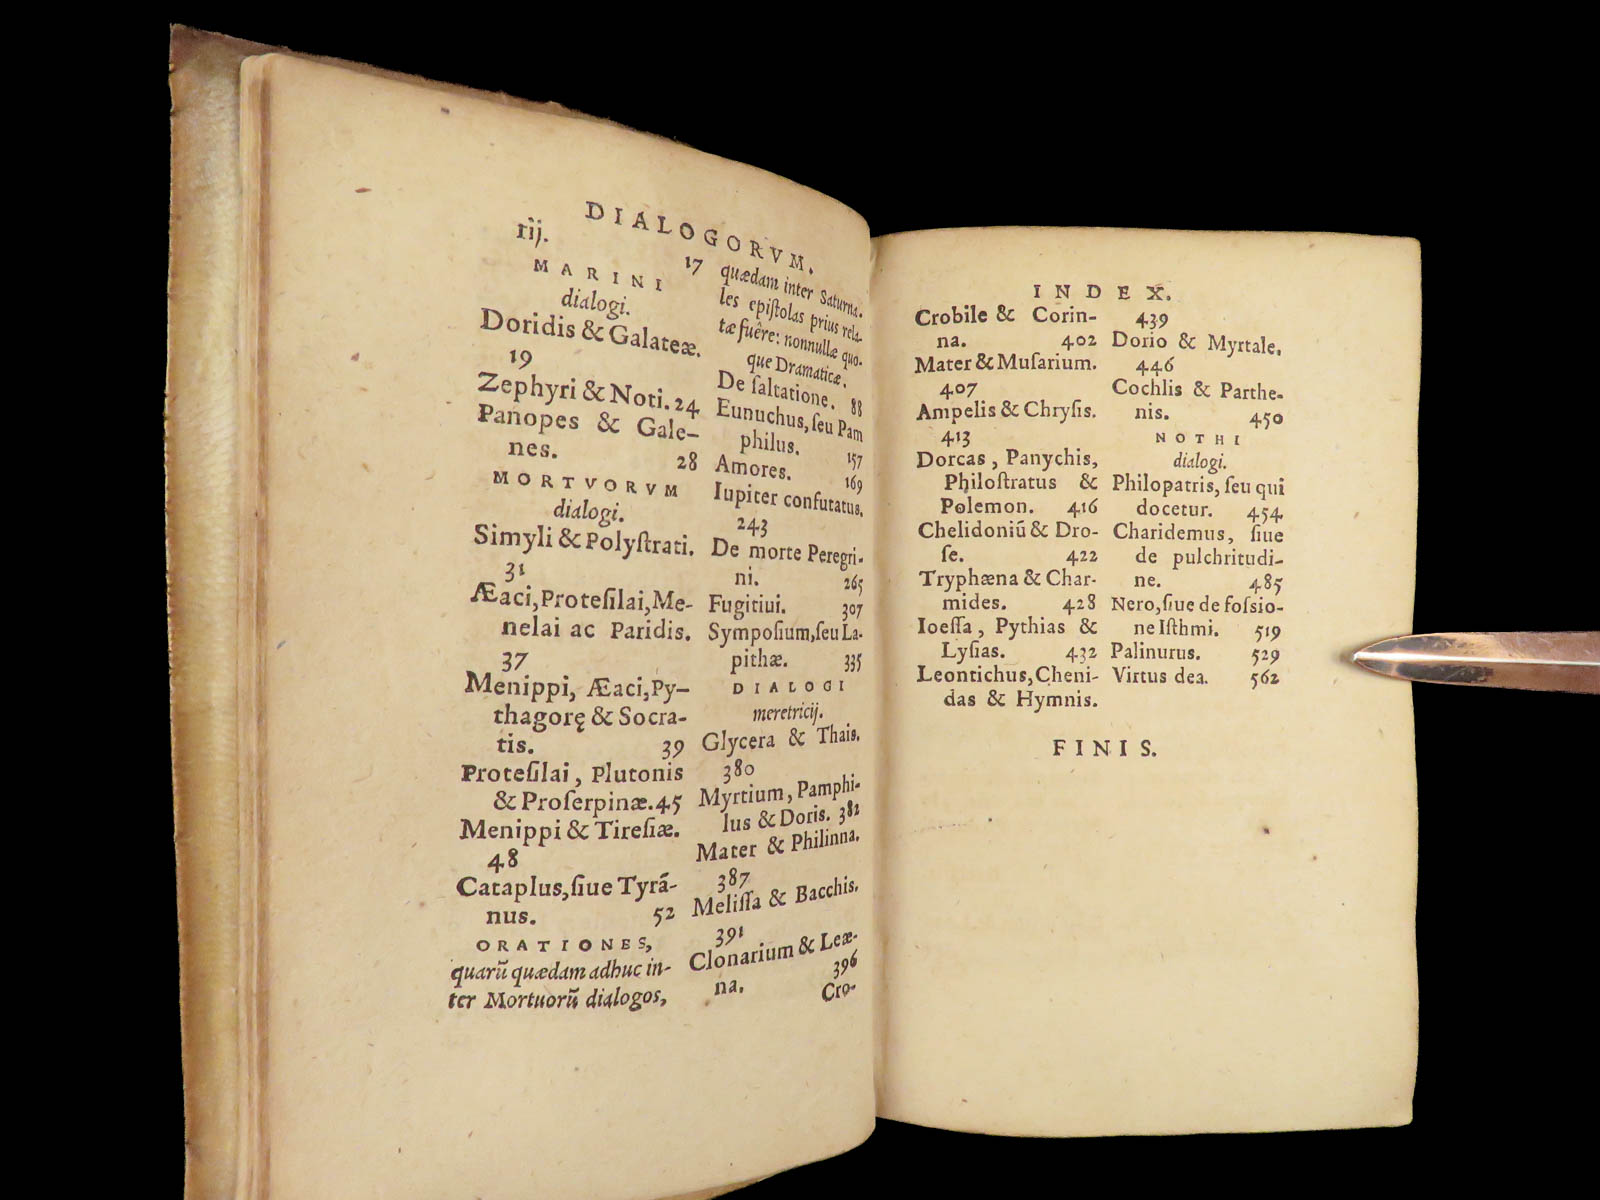 DIALOGORVM.
rij. 17
MARINI
dialogi.
Doridis & Galateæ.
19
Zephyri & Noti. 24
Panopes & Gale-
nes. 28
MORTVORVM
dialogi.
Simyli & Polyſtrati.
31
Æaci, Proteſilai, Me-
nelai ac Paridis.
37
Menippi, Æaci, Py-
thagorę & Socra-
tis. 39
Proteſilai, Plutonis
& Proſerpinæ. 45
Menippi & Tireſiæ.
48
Cataplus, ſiue Tyrā-
nus. 52
ORATIONES,
quarū quædam adhuc in-
ter Mortuorū dialogos,
quædam inter Saturna-
les epiſtolas prius rela-
tæ fuêre: nonnullæ quo-
que Dramaticæ.
De ſaltatione. 88
Eunuchus, ſeu Pam
philus. 157
Amores. 169
Iupiter confutatus.
243
De morte Peregri-
ni. 265
Fugitiui. 307
Sympoſium, ſeu La-
pithæ. 335
DIALOGI
meretricij.
Glycera & Thais.
380
Myrtium, Pamphi-
lus & Doris. 382
Mater & Philinna.
387
Meliſſa & Bacchis.
391
Clonarium & Leæ-
na. 396
Cro-
INDEX.
Crobile & Corin-
na. 402
Mater & Muſarium.
407
Ampelis & Chryſis.
413
Dorcas, Panychis,
Philoſtratus &
Polemon. 416
Chelidoniū & Dro-
ſe. 422
Tryphæna & Char-
mides. 428
Ioeſſa, Pythias &
Lyſias. 432
Leontichus, Cheni-
das & Hymnis.
439
Dorio & Myrtale.
446
Cochlis & Parthe-
nis. 450
NOTHI
dialogi.
Philopatris, ſeu qui
docetur. 454
Charidemus, ſiue
de pulchritudi-
ne. 485
Nero, ſiue de foſsio-
ne Iſthmi. 519
Palinurus. 529
Virtus dea. 562
FINIS.